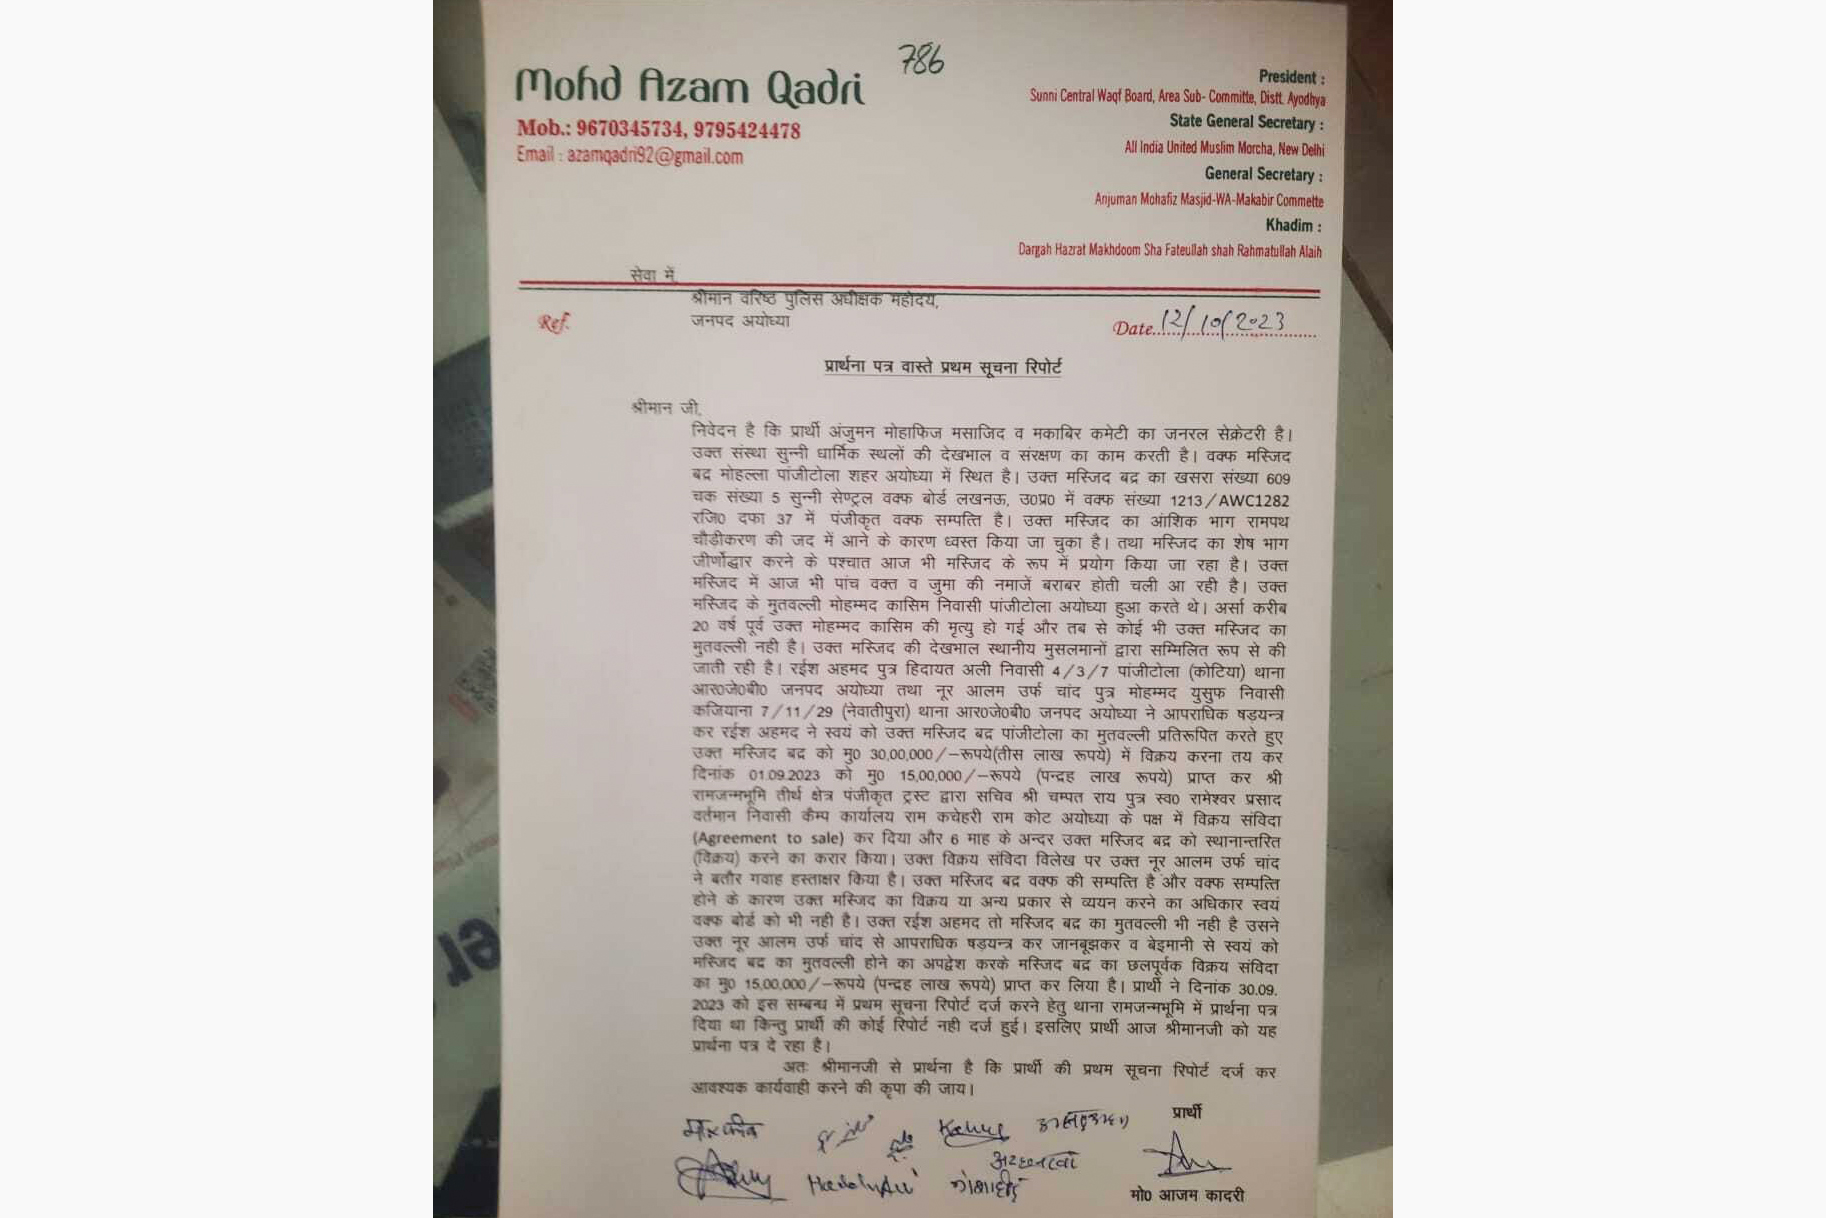 786
Mohd Azam Qadri
Mob.: 9670345734, 9795424478
Email : azamqadri92@gmail.com
President :
Sunni Central Waqf Board, Area Sub- Committe, Distt. Ayodhya
State General Secretary :
All India United Muslim Morcha, New Delhi
General Secretary :
Anjuman Mohafiz Masjid-WA-Makabir Commette
Khadim :
Dargah Hazrat Makhdoom Sha Fateullah shah Rahmatullah Alaih
सेवा में,
श्रीमान वरिष्ठ पुलिस अधीक्षक महोदय,
जनपद अयोध्या
Ref.
Date..12/10/2023
प्रार्थना पत्र वास्ते प्रथम सूचना रिपोर्ट
श्रीमान जी,
निवेदन है कि प्रार्थी अंजुमन मोहाफिज मसाजिद व मकाबिर कमेटी का जनरल सेक्रेटरी है।
उक्त संस्था सुन्नी धार्मिक स्थलों की देखभाल व संरक्षण का काम करती है। वक्फ मस्जिद
बद्र मोहल्ला पांजीटोला शहर अयोध्या में स्थित है। उक्त मस्जिद बद्र का खसरा संख्या 609
चक संख्या 5 सुन्नी सेण्ट्रल वक्फ बोर्ड लखनऊ, उ0प्र0 में वक्फ संख्या 1213/AWC1282
रजि0 दफा 37 में पंजीकृत वक्फ सम्पत्ति है। उक्त मस्जिद का आंशिक भाग रामपथ
चौड़ीकरण की जद में आने के कारण ध्वस्त किया जा चुका है। तथा मस्जिद का शेष भाग
जीर्णोद्धार करने के पश्चात आज भी मस्जिद के रूप में प्रयोग किया जा रहा है। उक्त
मस्जिद में आज भी पांच वक्त व जुमा की नमाजें बराबर होती चली आ रही है। उक्त
मस्जिद के मुतवल्ली मोहम्मद कासिम निवासी पांजीटोला अयोध्या हुआ करते थे। अर्सा करीब
20 वर्ष पूर्व उक्त मोहम्मद कासिम की मृत्यु हो गई और तब से कोई भी उक्त मस्जिद का
मुतवल्ली नही है। उक्त मस्जिद की देखभाल स्थानीय मुसलमानों द्वारा सम्मिलित रूप से की
जाती रही है। रईश अहमद पुत्र हिदायत अली निवासी 4/3/7 पांजीटोला (कोटिया) थाना
आर0जे0बी0 जनपद अयोध्या तथा नूर आलम उर्फ चांद पुत्र मोहम्मद युसुफ निवासी
कजियाना 7/11/29 (नेवातीपुरा) थाना आर0जे0बी0 जनपद अयोध्या ने आपराधिक षड़यन्त्र
कर रईश अहमद ने स्वयं को उक्त मस्जिद बद्र पांजीटोला का मुतवल्ली प्रतिरूपित करते हुए
उक्त मस्जिद बद्र को मु0 30,00,000/-रूपये(तीस लाख रूपये) में विक्रय करना तय कर
दिनांक 01.09.2023 को मु0 15,00,000/-रूपये (पन्द्रह लाख रूपये) प्राप्त कर श्री
रामजन्मभूमि तीर्थ क्षेत्र पंजीकृत ट्रस्ट द्वारा सचिव श्री चम्पत राय पुत्र स्व0 रामेश्वर प्रसाद
वर्तमान निवासी कैम्प कार्यालय राम कचेहरी राम कोट अयोध्या के पक्ष में विक्रय संविदा
(Agreement to sale) कर दिया और 6 माह के अन्दर उक्त मस्जिद बद्र को स्थानान्तरित
(विक्रय) करने का करार किया। उक्त विक्रय संविदा विलेख पर उक्त नूर आलम उर्फ चांद
ने बतौर गवाह हस्ताक्षर किया है। उक्त मस्जिद बद्र वक्फ की सम्पत्ति है और वक्फ सम्पत्ति
होने के कारण उक्त मस्जिद का विक्रय या अन्य प्रकार से व्ययन करने का अधिकार स्वयं
वक्फ बोर्ड को भी नही है। उक्त रईश अहमद तो मस्जिद बद्र का मुतवल्ली भी नही है उसने
उक्त नूर आलम उर्फ चांद से आपराधिक षड़यन्त्र कर जानबूझकर व बेइमानी से स्वयं को
मस्जिद बद्र का मुतवल्ली होने का अपद्वेश करके मस्जिद बद्र का छलपूर्वक विक्रय संविदा
का मु0 15,00,000/-रूपये (पन्द्रह लाख रूपये) प्राप्त कर लिया है। प्रार्थी ने दिनांक 30.09.
2023 को इस सम्बन्ध में प्रथम सूचना रिपोर्ट दर्ज करने हेतु थाना रामजन्मभूमि में प्रार्थना पत्र
दिया था किन्तु प्रार्थी की कोई रिपोर्ट नही दर्ज हुई। इसलिए प्रार्थी आज श्रीमानजी को यह
प्रार्थना पत्र दे रहा है।
अतः श्रीमानजी से प्रार्थना है कि प्रार्थी की प्रथम सूचना रिपोर्ट दर्ज कर
आवश्यक कार्यवाही करने की कृपा की जाय।
प्रार्थी
मो0 आजम कादरी